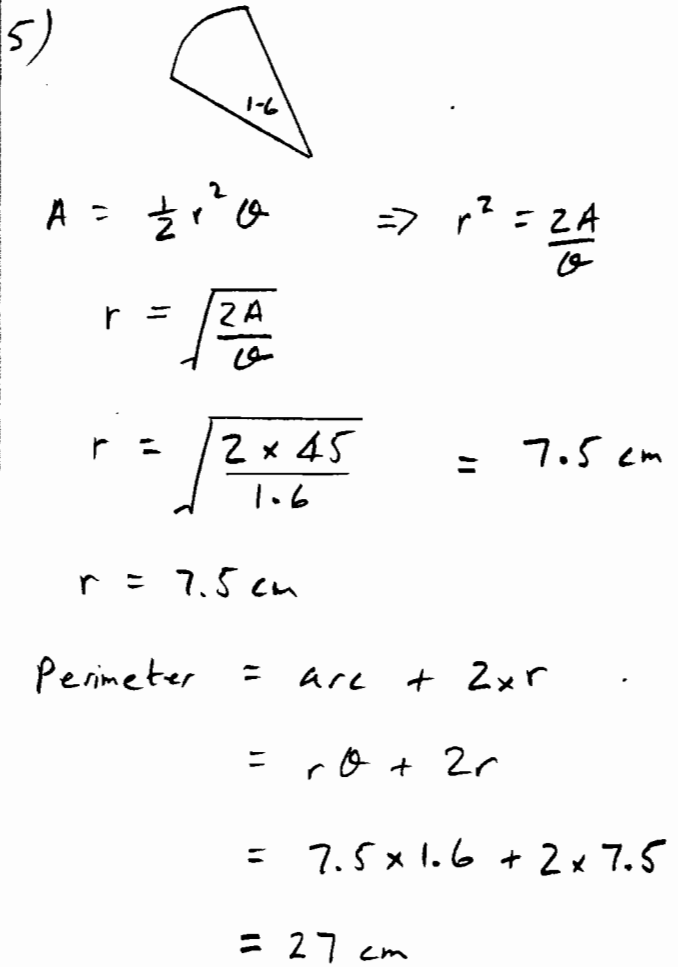 5)
1-6
A = ½ r² θ ⇒ r² = 2A/θ
r = √(2A/θ)
r = √(2 × 45/1.6) = 7.5 cm
r = 7.5 cm
Perimeter = arc + 2×r
= rθ + 2r
= 7.5 × 1.6 + 2 × 7.5
= 27 cm